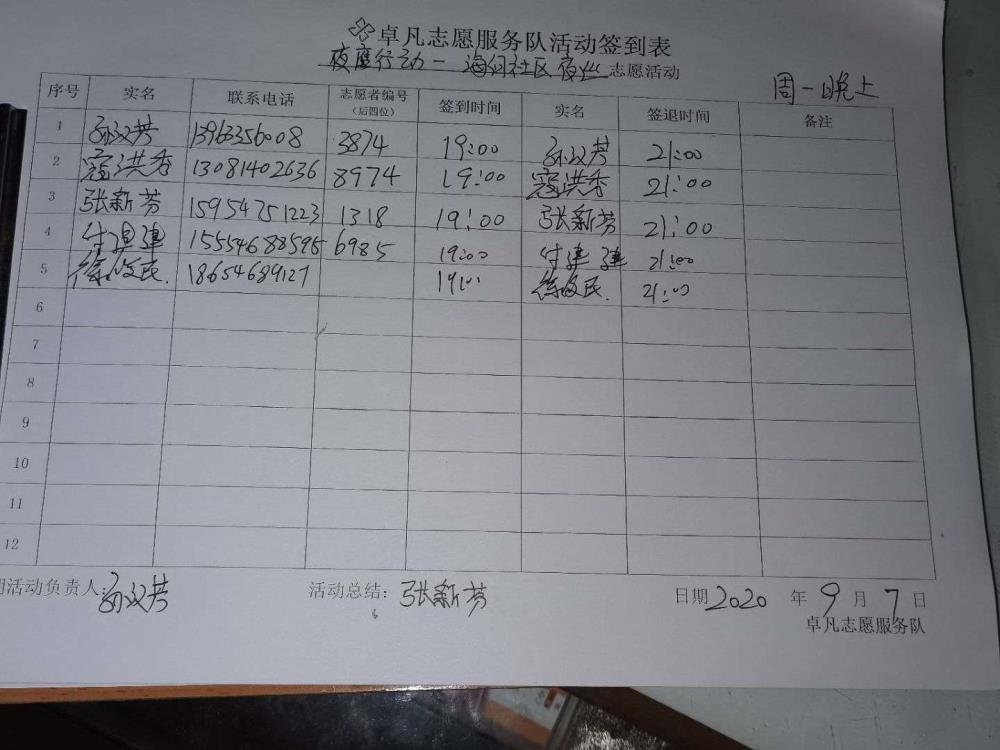 卓凡志愿服务队活动签到表
夜鹰行动一海河社区夜巡志愿活动
周一晚上
序号 实名 联系电话 志愿者编号(后四位) 签到时间 实名 签退时间 备注
1 孙汉芳 13963356008 3874 19:00 孙汉芳 21:00
2 寇洪香 13081402636 8974 19:00 寇洪香 21:00
3 张新芬 15954751223 1318 19:00 张新芬 21:00
4 15554688595 6985 19:00 21:00
5 徐俊民. 18654689127 19:00 徐俊民. 21:00
6
7
8
9
10
11
12
活动负责人:孙汉芳 活动总结:张新芬 日期2020年9月7日
卓凡志愿服务队